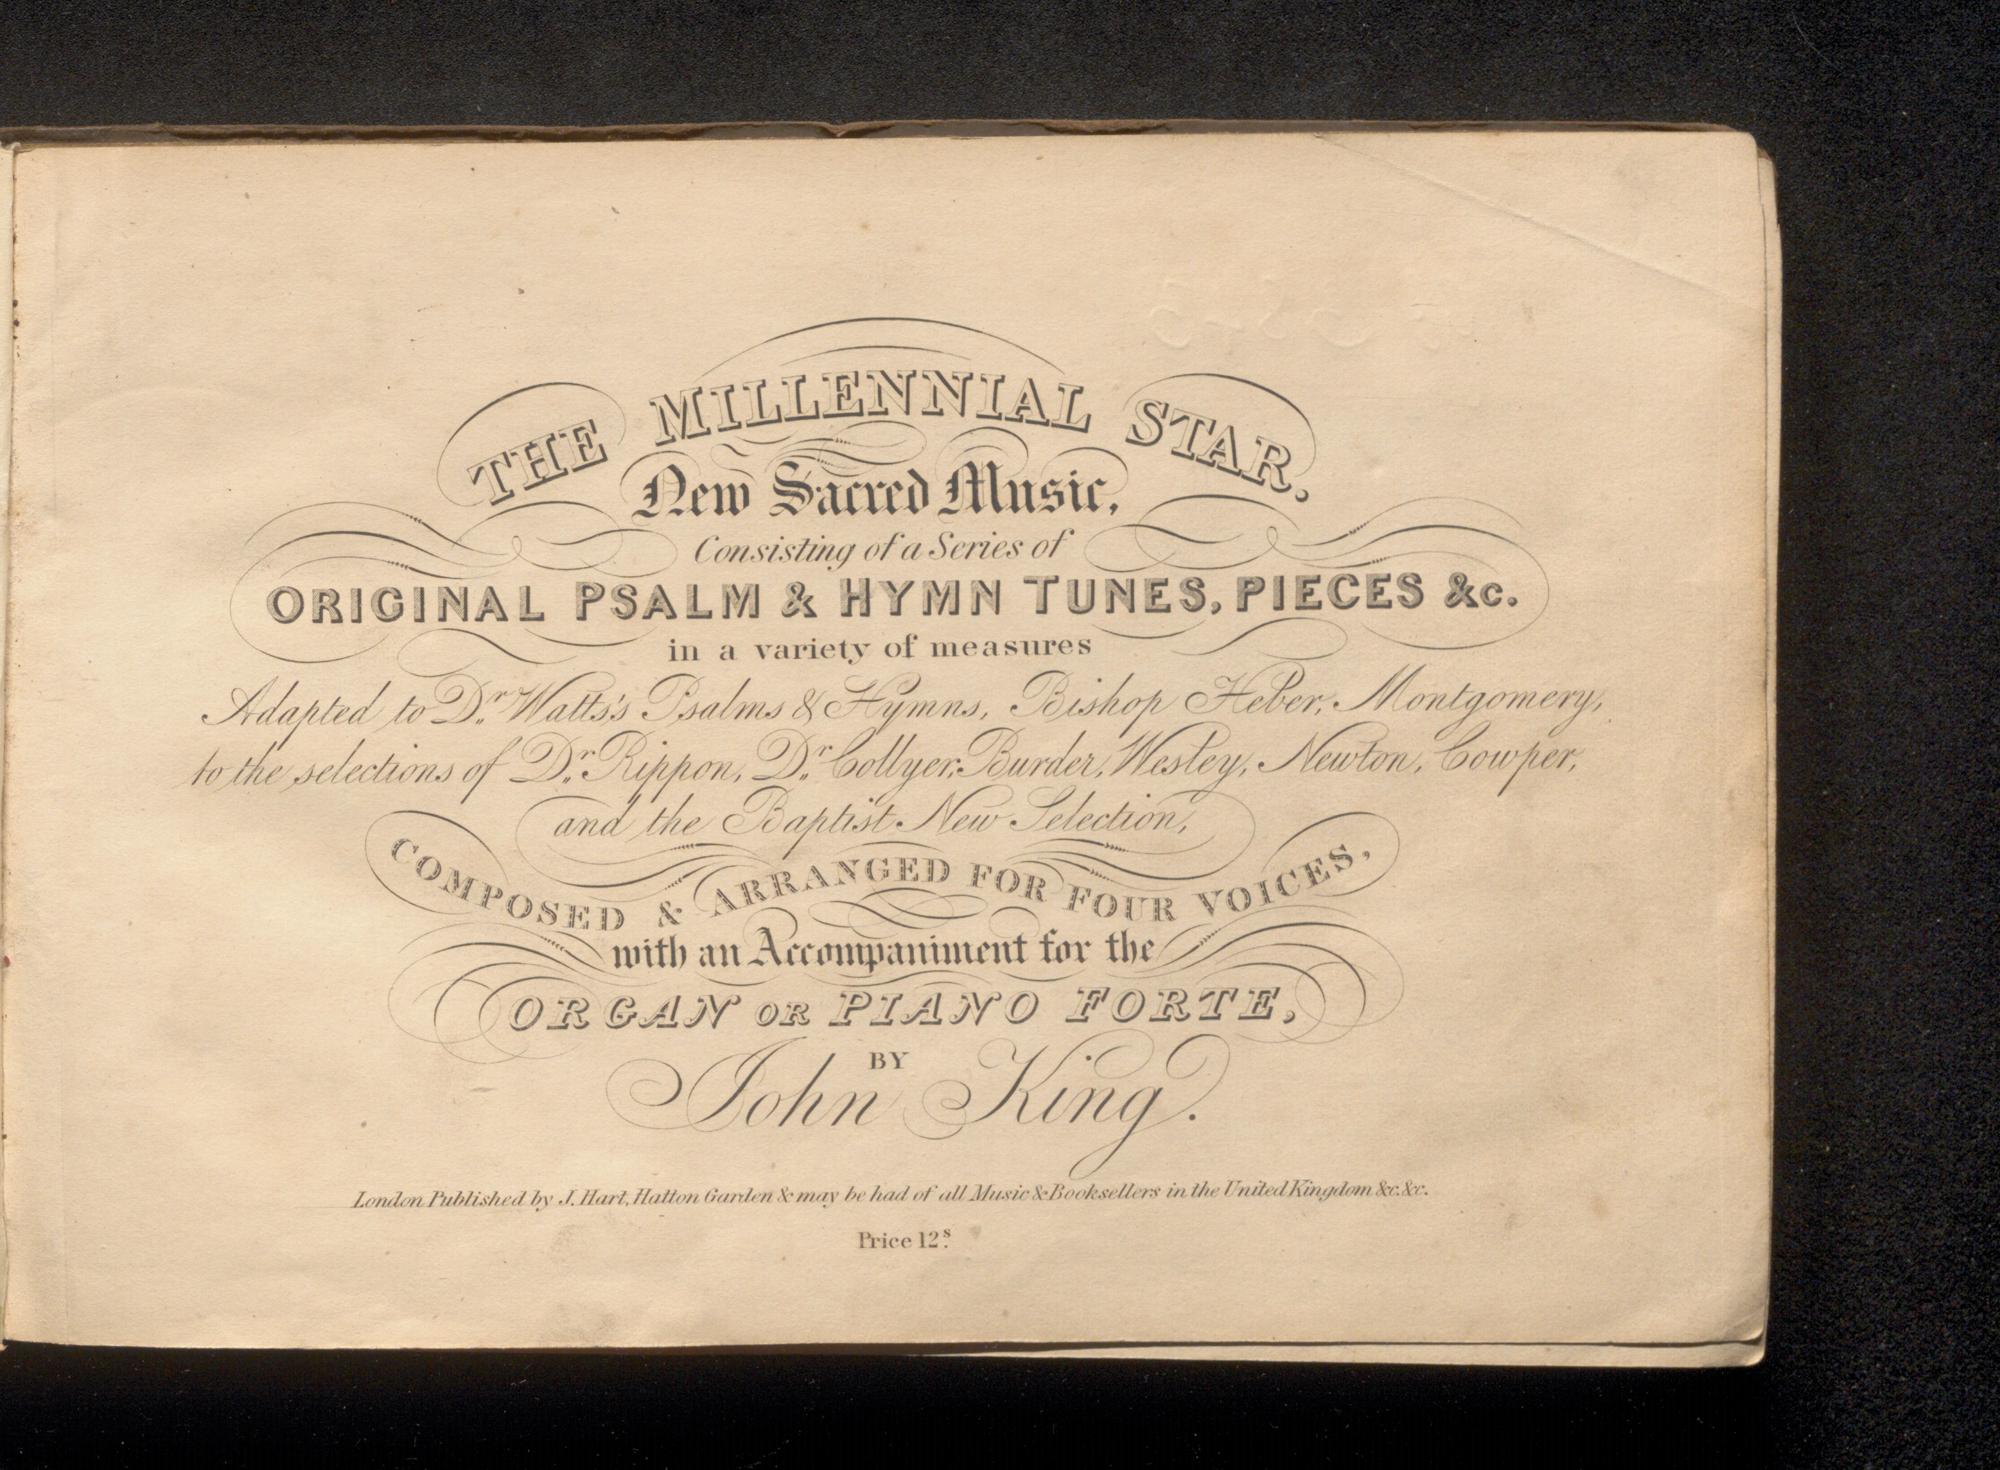 THE MILLENNIAL STAR.
New Sacred Music,
Consisting of a Series of
ORIGINAL PSALM & HYMN TUNES, PIECES &c.
in a variety of measures
Adapted to Dr. Watts's Psalms & Hymns, Bishop Heber, Montgomery,
to the selections of Dr. Rippon, Dr. Collyer, Burder, Wesley, Newton, Cowper,
and the Baptist New Selection,
COMPOSED & ARRANGED FOR FOUR VOICES,
with an Accompaniment for the
ORGAN OR PIANO FORTE,
BY
John King.
London Published by J. Hart, Hatton Garden & may be had of all Music & Booksellers in the United Kingdom &c. &c.
Price 12s.